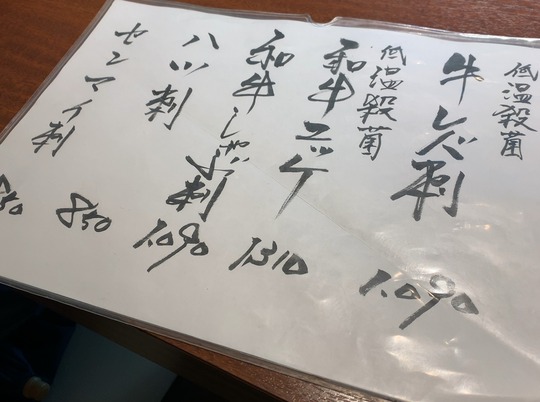 低温殺菌
牛レバ刺
1.090
低温殺菌
和牛ユッケ
1310
和牛しゃぶ刺
1.090
ハツ刺
850
センマイ刺
850